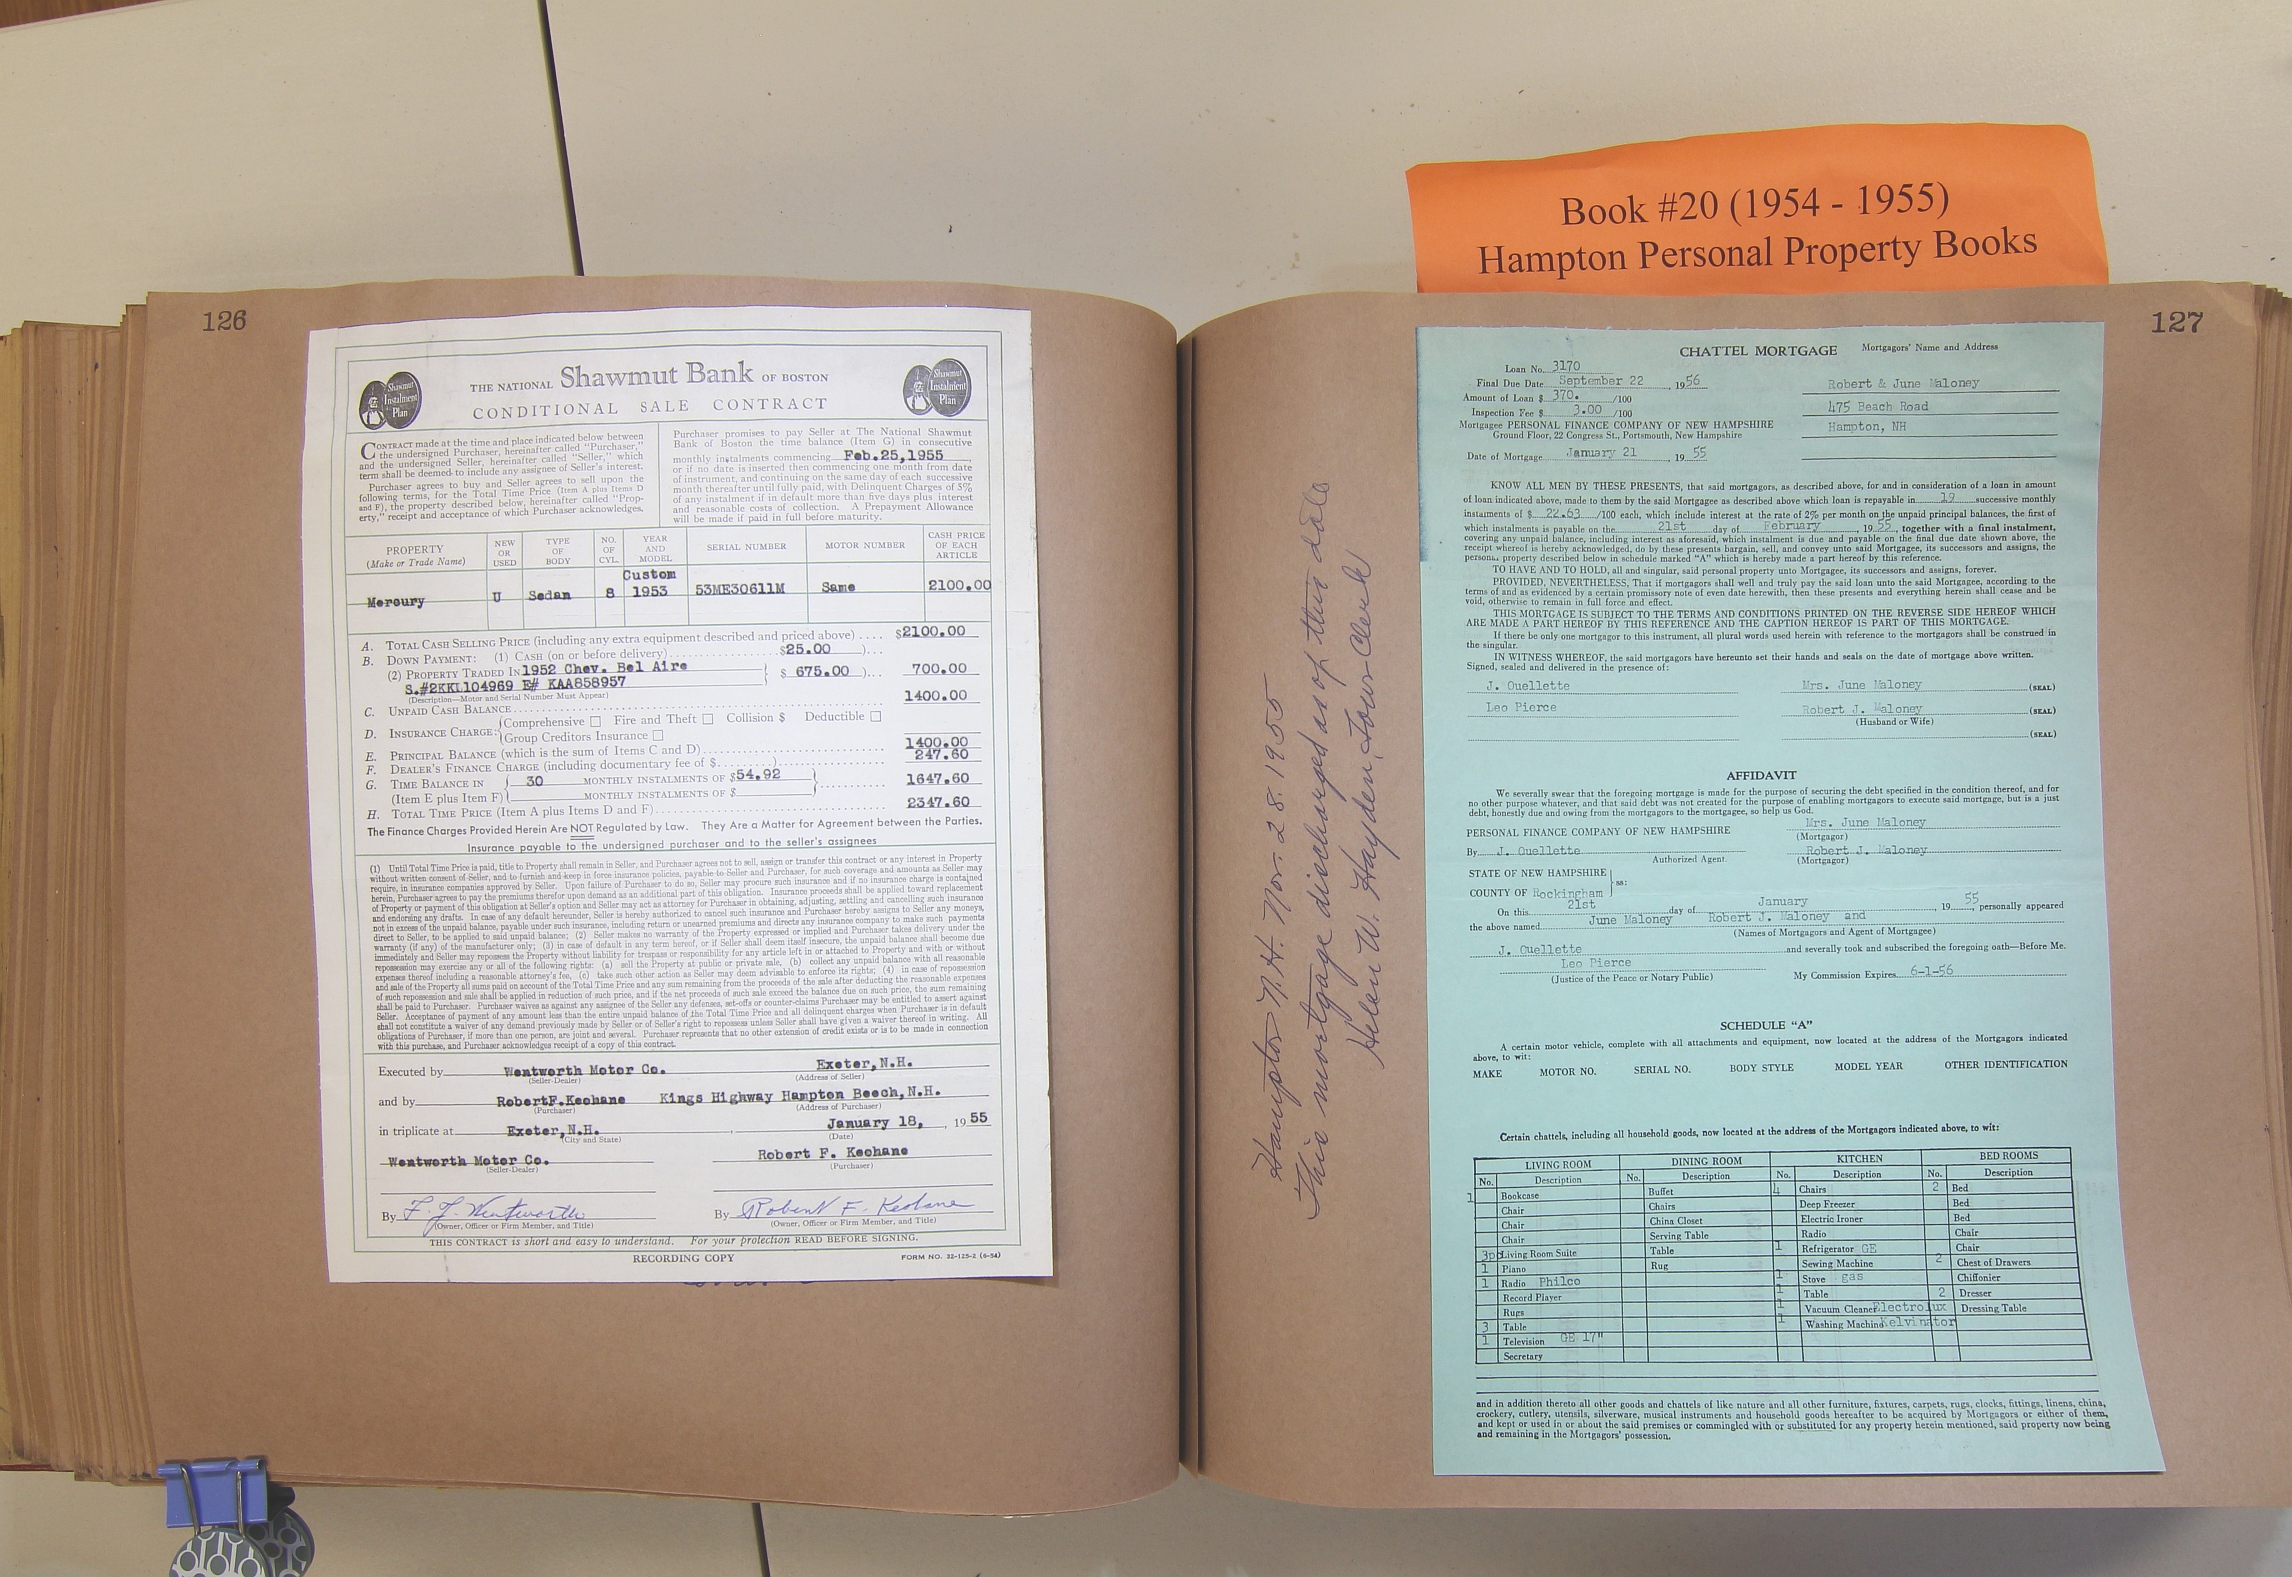 Book #20 (1954 - 1955)
Hampton Personal Property Books
126
Shawmut
Instalment
Plan
THE NATIONAL Shawmut Bank OF BOSTON
CONDITIONAL SALE CONTRACT
Shawmut
Instalment
Plan
CONTRACT made at the time and place indicated below between
the undersigned Purchaser, hereinafter called "Purchaser,"
and the undersigned Seller, hereinafter called "Seller," which
term shall be deemed to include any assignee of Seller's interest.
Purchaser agrees to buy and Seller agrees to sell upon the
following terms, for the Total Time Price (Item A plus Items D
and F), the property described below, hereinafter called "Prop-
erty," receipt and acceptance of which Purchaser acknowledges.
Purchaser promises to pay Seller at The National Shawmut
Bank of Boston the time balance (Item G) in consecutive
monthly instalments commencing Feb.25,1955
or if no date is inserted then commencing one month from date
of instrument, and continuing on the same day of each successive
month thereafter until fully paid, with Delinquent Charges of 5%
of any instalment if in default more than five days plus interest
and reasonable costs of collection. A Prepayment Allowance
will be made if paid in full before maturity.
PROPERTY (Make or Trade Name) NEW OR USED TYPE OF BODY NO. OF CYL. YEAR AND MODEL SERIAL NUMBER MOTOR NUMBER CASH PRICE OF EACH ARTICLE
Mercury U Sedan 8 Custom 1953 53ME30611M Same 2100.00
A. TOTAL CASH SELLING PRICE (including any extra equipment described and priced above) .... $2100.00
B. DOWN PAYMENT: (1) CASH (on or before delivery) $25.00 )...
(2) PROPERTY TRADED IN 1952 Chev. Bel Aire $ 675.00 )... 700.00
S.#2KKL104969 E# KAA858957
(Description—Motor and Serial Number Must Appear)
C. UNPAID CASH BALANCE 1400.00
D. INSURANCE CHARGE: Comprehensive Fire and Theft Collision $ Deductible
Group Creditors Insurance
E. PRINCIPAL BALANCE (which is the sum of Items C and D) 1400.00
F. DEALER'S FINANCE CHARGE (including documentary fee of $ ) 247.60
G. TIME BALANCE IN 30 MONTHLY INSTALMENTS OF $54.92 1647.60
(Item E plus Item F) MONTHLY INSTALMENTS OF $
H. TOTAL TIME PRICE (Item A plus Items D and F) 2347.60
The Finance Charges Provided Herein Are NOT Regulated by Law. They Are a Matter for Agreement between the Parties.
Insurance payable to the undersigned purchaser and to the seller's assignees
(1) Until Total Time Price is paid, title to Property shall remain in Seller, and Purchaser agrees not to sell, assign or transfer this contract or any interest in Property
without written consent of Seller, and to furnish and keep in force insurance policies, payable to Seller and Purchaser, for such coverage and amounts as Seller may
require, in insurance companies approved by Seller. Upon failure of Purchaser to do so, Seller may procure such insurance and if no insurance charge is contained
herein, Purchaser agrees to pay the premiums therefor upon demand as an additional part of this obligation. Insurance proceeds shall be applied toward replacement
of Property or payment of this obligation at Seller's option and Seller may act as attorney for Purchaser in obtaining, adjusting, settling and cancelling such insurance
and endorsing any drafts. In case of any default hereunder, Seller is hereby authorized to cancel such insurance and Purchaser hereby assigns to Seller any moneys,
not in excess of the unpaid balance, payable under such insurance, including return or unearned premiums and directs any insurance company to make such payments
direct to Seller, to be applied to said unpaid balance; (2) Seller makes no warranty of the Property expressed or implied and Purchaser takes delivery under the
warranty (if any) of the manufacturer only; (3) in case of default in any term hereof, or if Seller shall deem itself insecure, the unpaid balance shall become due
immediately and Seller may repossess the Property without liability for trespass or responsibility for any article left in or attached to Property and with or without
repossession may exercise any or all of the following rights: (a) sell the Property at public or private sale, (b) collect any unpaid balance with all reasonable
expenses thereof including a reasonable attorney's fee, (c) take such other action as Seller may deem advisable to enforce its rights; (4) in case of repossession
and sale of the Property all sums paid on account of the Total Time Price and any sum remaining from the proceeds of the sale after deducting the reasonable expenses
of such repossession and sale shall be applied in reduction of such price, and if the net proceeds of such sale exceed the balance due on such price, the sum remaining
shall be paid to Purchaser. Purchaser waives as against any assignee of the Seller any defenses, set-offs or counter-claims Purchaser may be entitled to assert against
Seller. Acceptance of payment of any amount less than the entire unpaid balance of the Total Time Price and all delinquent charges when Purchaser is in default
shall not constitute a waiver of any demand previously made by Seller or of Seller's right to repossess unless Seller shall have given a waiver thereof in writing. All
obligations of Purchaser, if more than one person, are joint and several. Purchaser represents that no other extension of credit exists or is to be made in connection
with this purchase, and Purchaser acknowledges receipt of a copy of this contract.
Executed by Wentworth Motor Co. Exeter,N.H.
(Seller-Dealer) (Address of Seller)
and by RobertF.Keohane Kings Highway Hampton Beech,N.H.
(Purchaser) (Address of Purchaser)
in triplicate at Exeter,N.H. January 18, 19 55
(City and State) (Date)
Wentworth Motor Co. Robert F. Keohane
(Seller-Dealer) (Purchaser)
By F. J. Wentworth By Robert F. Keohane
(Owner, Officer or Firm Member, and Title) (Owner, Officer or Firm Member, and Title)
THIS CONTRACT is short and easy to understand. For your protection READ BEFORE SIGNING.
RECORDING COPY FORM NO. 32-125-2 (6-54)
127
Hampton N.H. Nov. 28. 1955
This mortgage discharged as of this date
Helen W. Hayden, Town Clerk
CHATTEL MORTGAGE Mortgagors' Name and Address
Loan No. 3170
Final Due Date September 22, 1956
Amount of Loan $ 370. /100
Inspection Fee $ 3.00 /100
Mortgagee PERSONAL FINANCE COMPANY OF NEW HAMPSHIRE
Ground Floor, 22 Congress St., Portsmouth, New Hampshire
Date of Mortgage January 21, 19 55
Robert & June Maloney
475 Beach Road
Hampton, NH
KNOW ALL MEN BY THESE PRESENTS, that said mortgagors, as described above, for and in consideration of a loan in amount
of loan indicated above, made to them by the said Mortgagee as described above which loan is repayable in 19 successive monthly
instalments of $ 22.63 /100 each, which include interest at the rate of 2% per month on the unpaid principal balances, the first of
which instalments is payable on the 21st day of February, 19 55, together with a final instalment,
covering any unpaid balance, including interest as aforesaid, which instalment is due and payable on the final due date shown above, the
receipt whereof is hereby acknowledged, do by these presents bargain, sell, and convey unto said Mortgagee, its successors and assigns, the
personal property described below in schedule marked "A" which is hereby made a part hereof by this reference.
TO HAVE AND TO HOLD, all and singular, said personal property unto Mortgagee, its successors and assigns, forever.
PROVIDED, NEVERTHELESS, That if mortgagors shall well and truly pay the said loan unto the said Mortgagee, according to the
terms of and as evidenced by a certain promissory note of even date herewith, then these presents and everything herein shall cease and be
void, otherwise to remain in full force and effect.
THIS MORTGAGE IS SUBJECT TO THE TERMS AND CONDITIONS PRINTED ON THE REVERSE SIDE HEREOF WHICH
ARE MADE A PART HEREOF BY THIS REFERENCE AND THE CAPTION HEREOF IS PART OF THIS MORTGAGE.
If there be only one mortgagor to this instrument, all plural words used herein with reference to the mortgagors shall be construed in
the singular.
IN WITNESS WHEREOF, the said mortgagors have hereunto set their hands and seals on the date of mortgage above written.
Signed, sealed and delivered in the presence of:
J. Ouellette Mrs. June Maloney (SEAL)
Leo Pierce Robert J. Maloney (SEAL)
(Husband or Wife)
(SEAL)
AFFIDAVIT
We severally swear that the foregoing mortgage is made for the purpose of securing the debt specified in the condition thereof, and for
no other purpose whatever, and that said debt was not created for the purpose of enabling mortgagors to execute said mortgage, but is a just
debt, honestly due and owing from the mortgagors to the mortgagee, so help us God.
PERSONAL FINANCE COMPANY OF NEW HAMPSHIRE Mrs. June Maloney
(Mortgagor)
By J. Ouellette Robert J. Maloney
Authorized Agent. (Mortgagor)
STATE OF NEW HAMPSHIRE
ss:
COUNTY OF Rockingham
On this 21st day of January 19 55, personally appeared
the above named June Maloney Robert J. Maloney and
(Names of Mortgagors and Agent of Mortgagee)
J. Ouellette and severally took and subscribed the foregoing oath—Before Me.
Leo Pierce
(Justice of the Peace or Notary Public) My Commission Expires 6-1-56
SCHEDULE "A"
A certain motor vehicle, complete with all attachments and equipment, now located at the address of the Mortgagors indicated
above, to wit:
MAKE MOTOR NO. SERIAL NO. BODY STYLE MODEL YEAR OTHER IDENTIFICATION
Certain chattels, including all household goods, now located at the address of the Mortgagors indicated above, to wit:
LIVING ROOM DINING ROOM KITCHEN BED ROOMS
No. Description No. Description No. Description No. Description
1 Bookcase Buffet 4 Chairs 2 Bed
Chair Chairs Deep Freezer Bed
Chair China Closet Electric Ironer Bed
Chair Serving Table Radio Chair
3pc Living Room Suite Table 1 Refrigerator GE Chair
1 Piano Rug Sewing Machine 2 Chest of Drawers
1 Radio Philco 1 Stove gas Chiffonier
Record Player 1 Table 2 Dresser
Rugs 1 Vacuum Cleaner Electrolux Dressing Table
3 Table 1 Washing Machine Kelvinator
1 Television GE 17"
Secretary
and in addition thereto all other goods and chattels of like nature and all other furniture, fixtures, carpets, rugs, clocks, fittings, linens, china,
crockery, cutlery, utensils, silverware, musical instruments and household goods hereafter to be acquired by Mortgagors or either of them,
and kept or used in or about the said premises or commingled with or substituted for any property herein mentioned, said property now being
and remaining in the Mortgagors' possession.